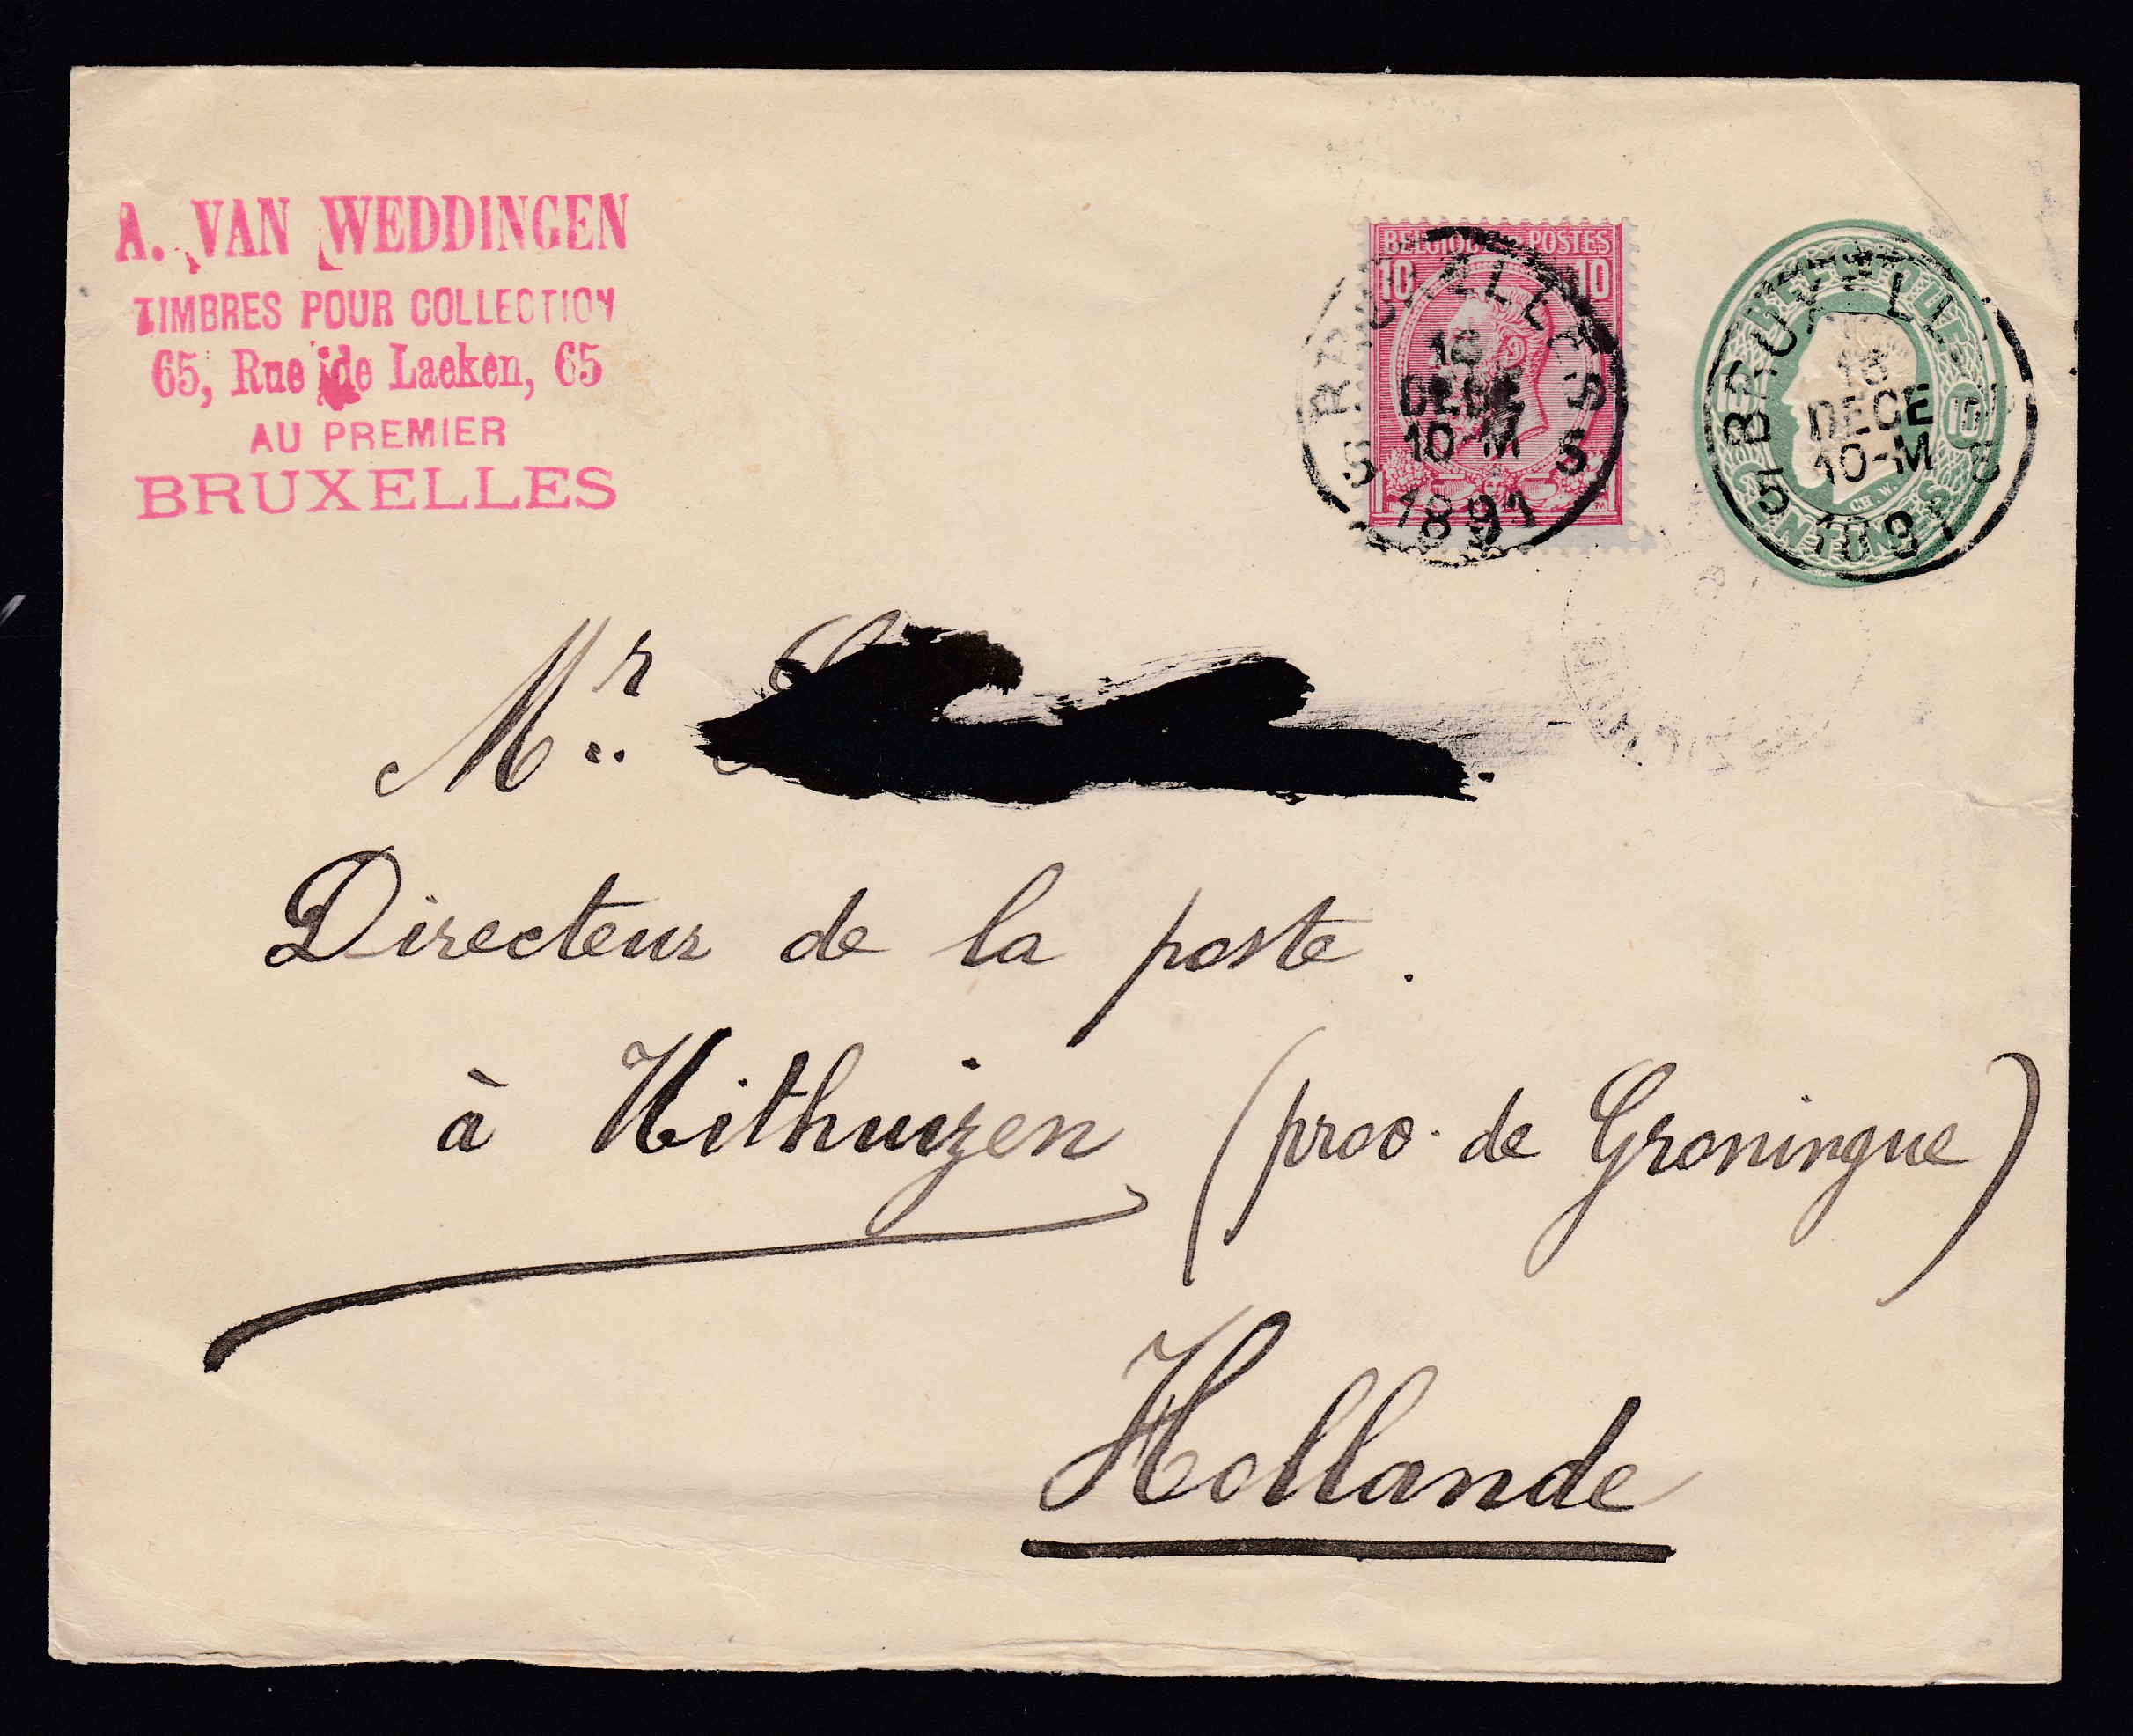 A. VAN WEDDINGEN
TIMBRES POUR COLLECTION
65, Rue de Laeken, 65
AU PREMIER
BRUXELLES
BELGIQUE POSTES
10 10
BRUXELLES
18
DECE
10-M
5 5
1891
BELGIQUE
10
CENTIMES
CH. W.
BRUXELLES
18
DECE
10-M
5 5
1891
Mr.
Directeur de la poste.
à Uithuizen (prov. de Groningue)
Hollande